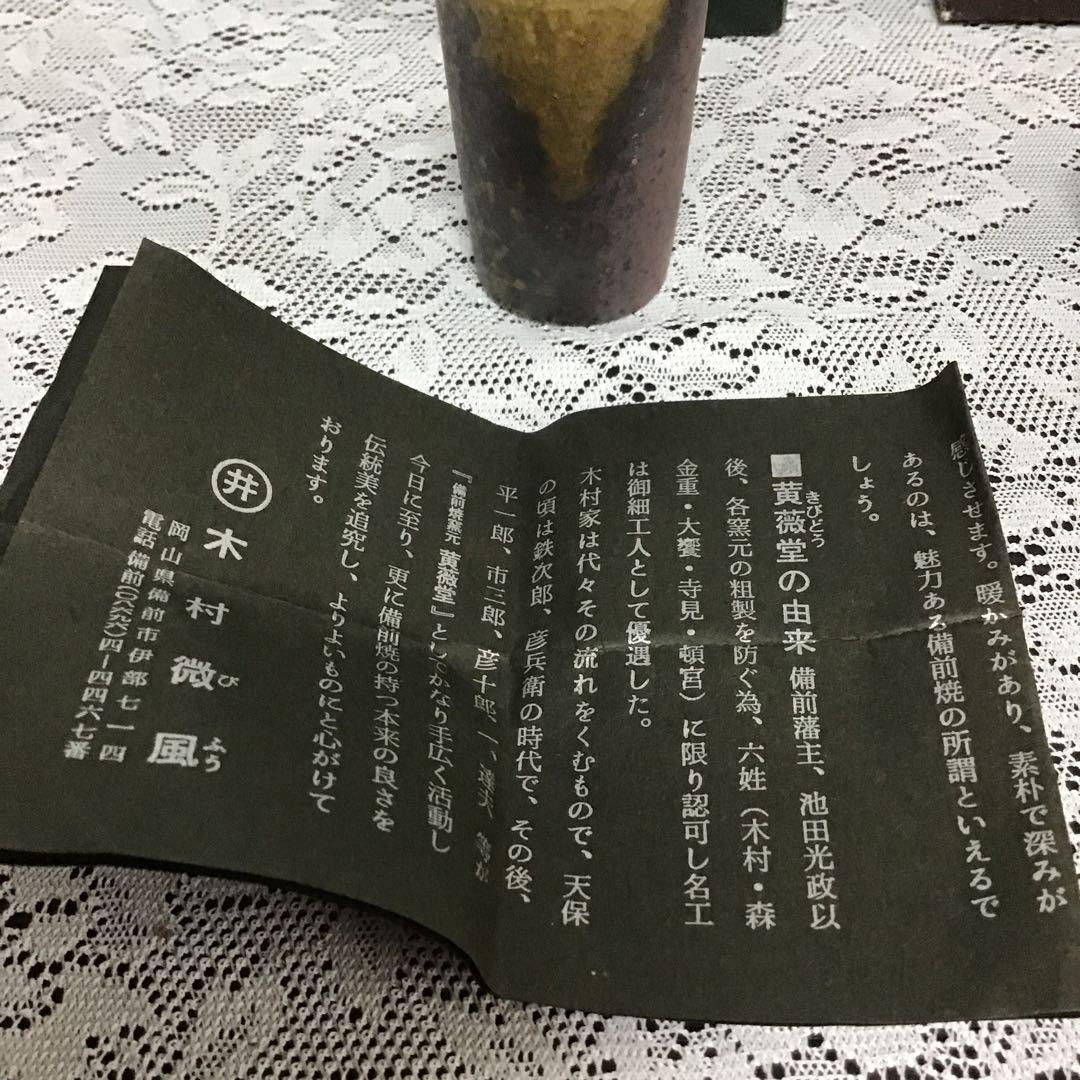 感じさせます。暖かみがあり、素朴で深みが
あるのは、魅力ある備前焼の所謂といえるで
しょう。
■黄薇堂の由来 備前藩主、池田光政以
きびどう
後、各窯元の粗製を防ぐ為、六姓（木村・森
金重・大饗・寺見・頓宮）に限り認可し名工
は御細工人として優遇した。
木村家は代々その流れをくむもので、天保
の頃は鉄次郎、彦兵衛の時代で、その後、
平一郎、市三郎、彦十郎、一、達夫、等が
『備前焼窯元 黄薇堂』としてかなり手広く活動し
今日に至り、更に備前焼の持つ本来の良さを
伝統美を追究し、よりよいものにと心がけて
おります。
井 木村微風
びふう
岡山県備前市伊部七一四
電話備前（〇八六九六）四－四四六七番